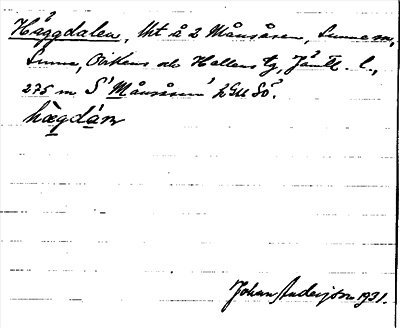 Häggdalen, lht å 2 Månsåsen, Sunne sn,
Sunne, Ovikens och Hallens tg, Jämtl. l.,
275 m S 'Månsåsen' 2SU SO.
hæ̀gdán
Johan Anderson 1931.